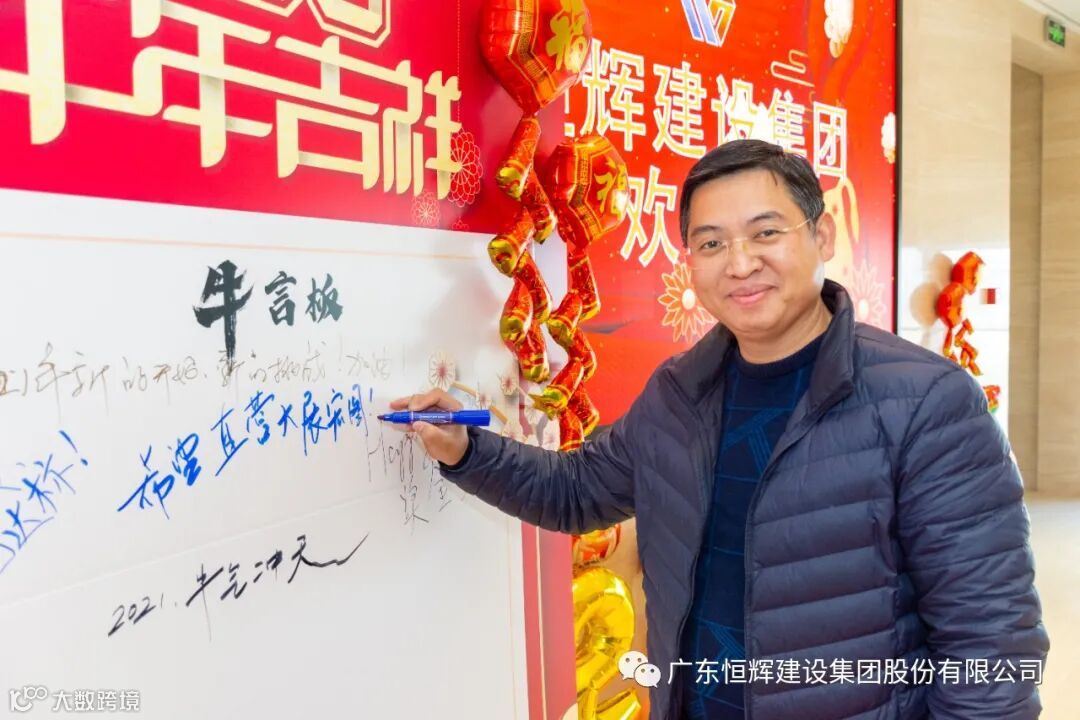 年吉祥
辉建设集团
欢
福
福
牛言板
21年新的开始、新的挑战！加油！
希望直营大展宏图！
达标！
2021、牛气冲天
广东恒辉建设集团股份有限公司
大数跨境